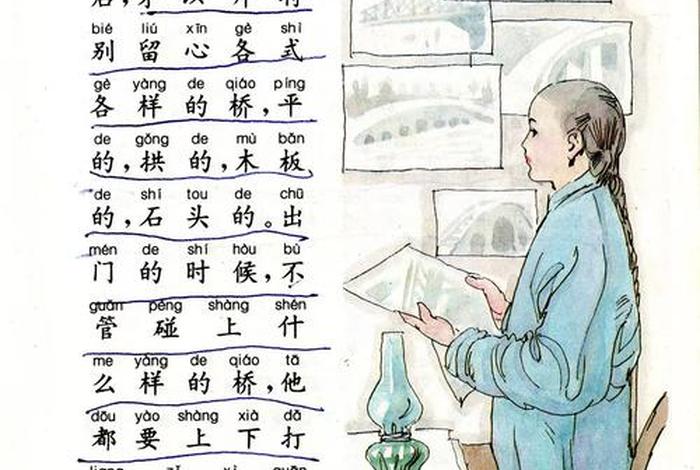 bié liú xīn gè shì
别留心各式
gè yàng de qiáo píng
各样的桥，平
de gǒng de mù bǎn
的，拱的，木板
de shí tou de chū
的，石头的。出
mén de shí hòu bù
门的时候，不
guǎn pèng shàng shén
管碰上什
me yàng de qiáo tā
么样的桥，他
dōu yào shàng xià dǎ
都要上下打